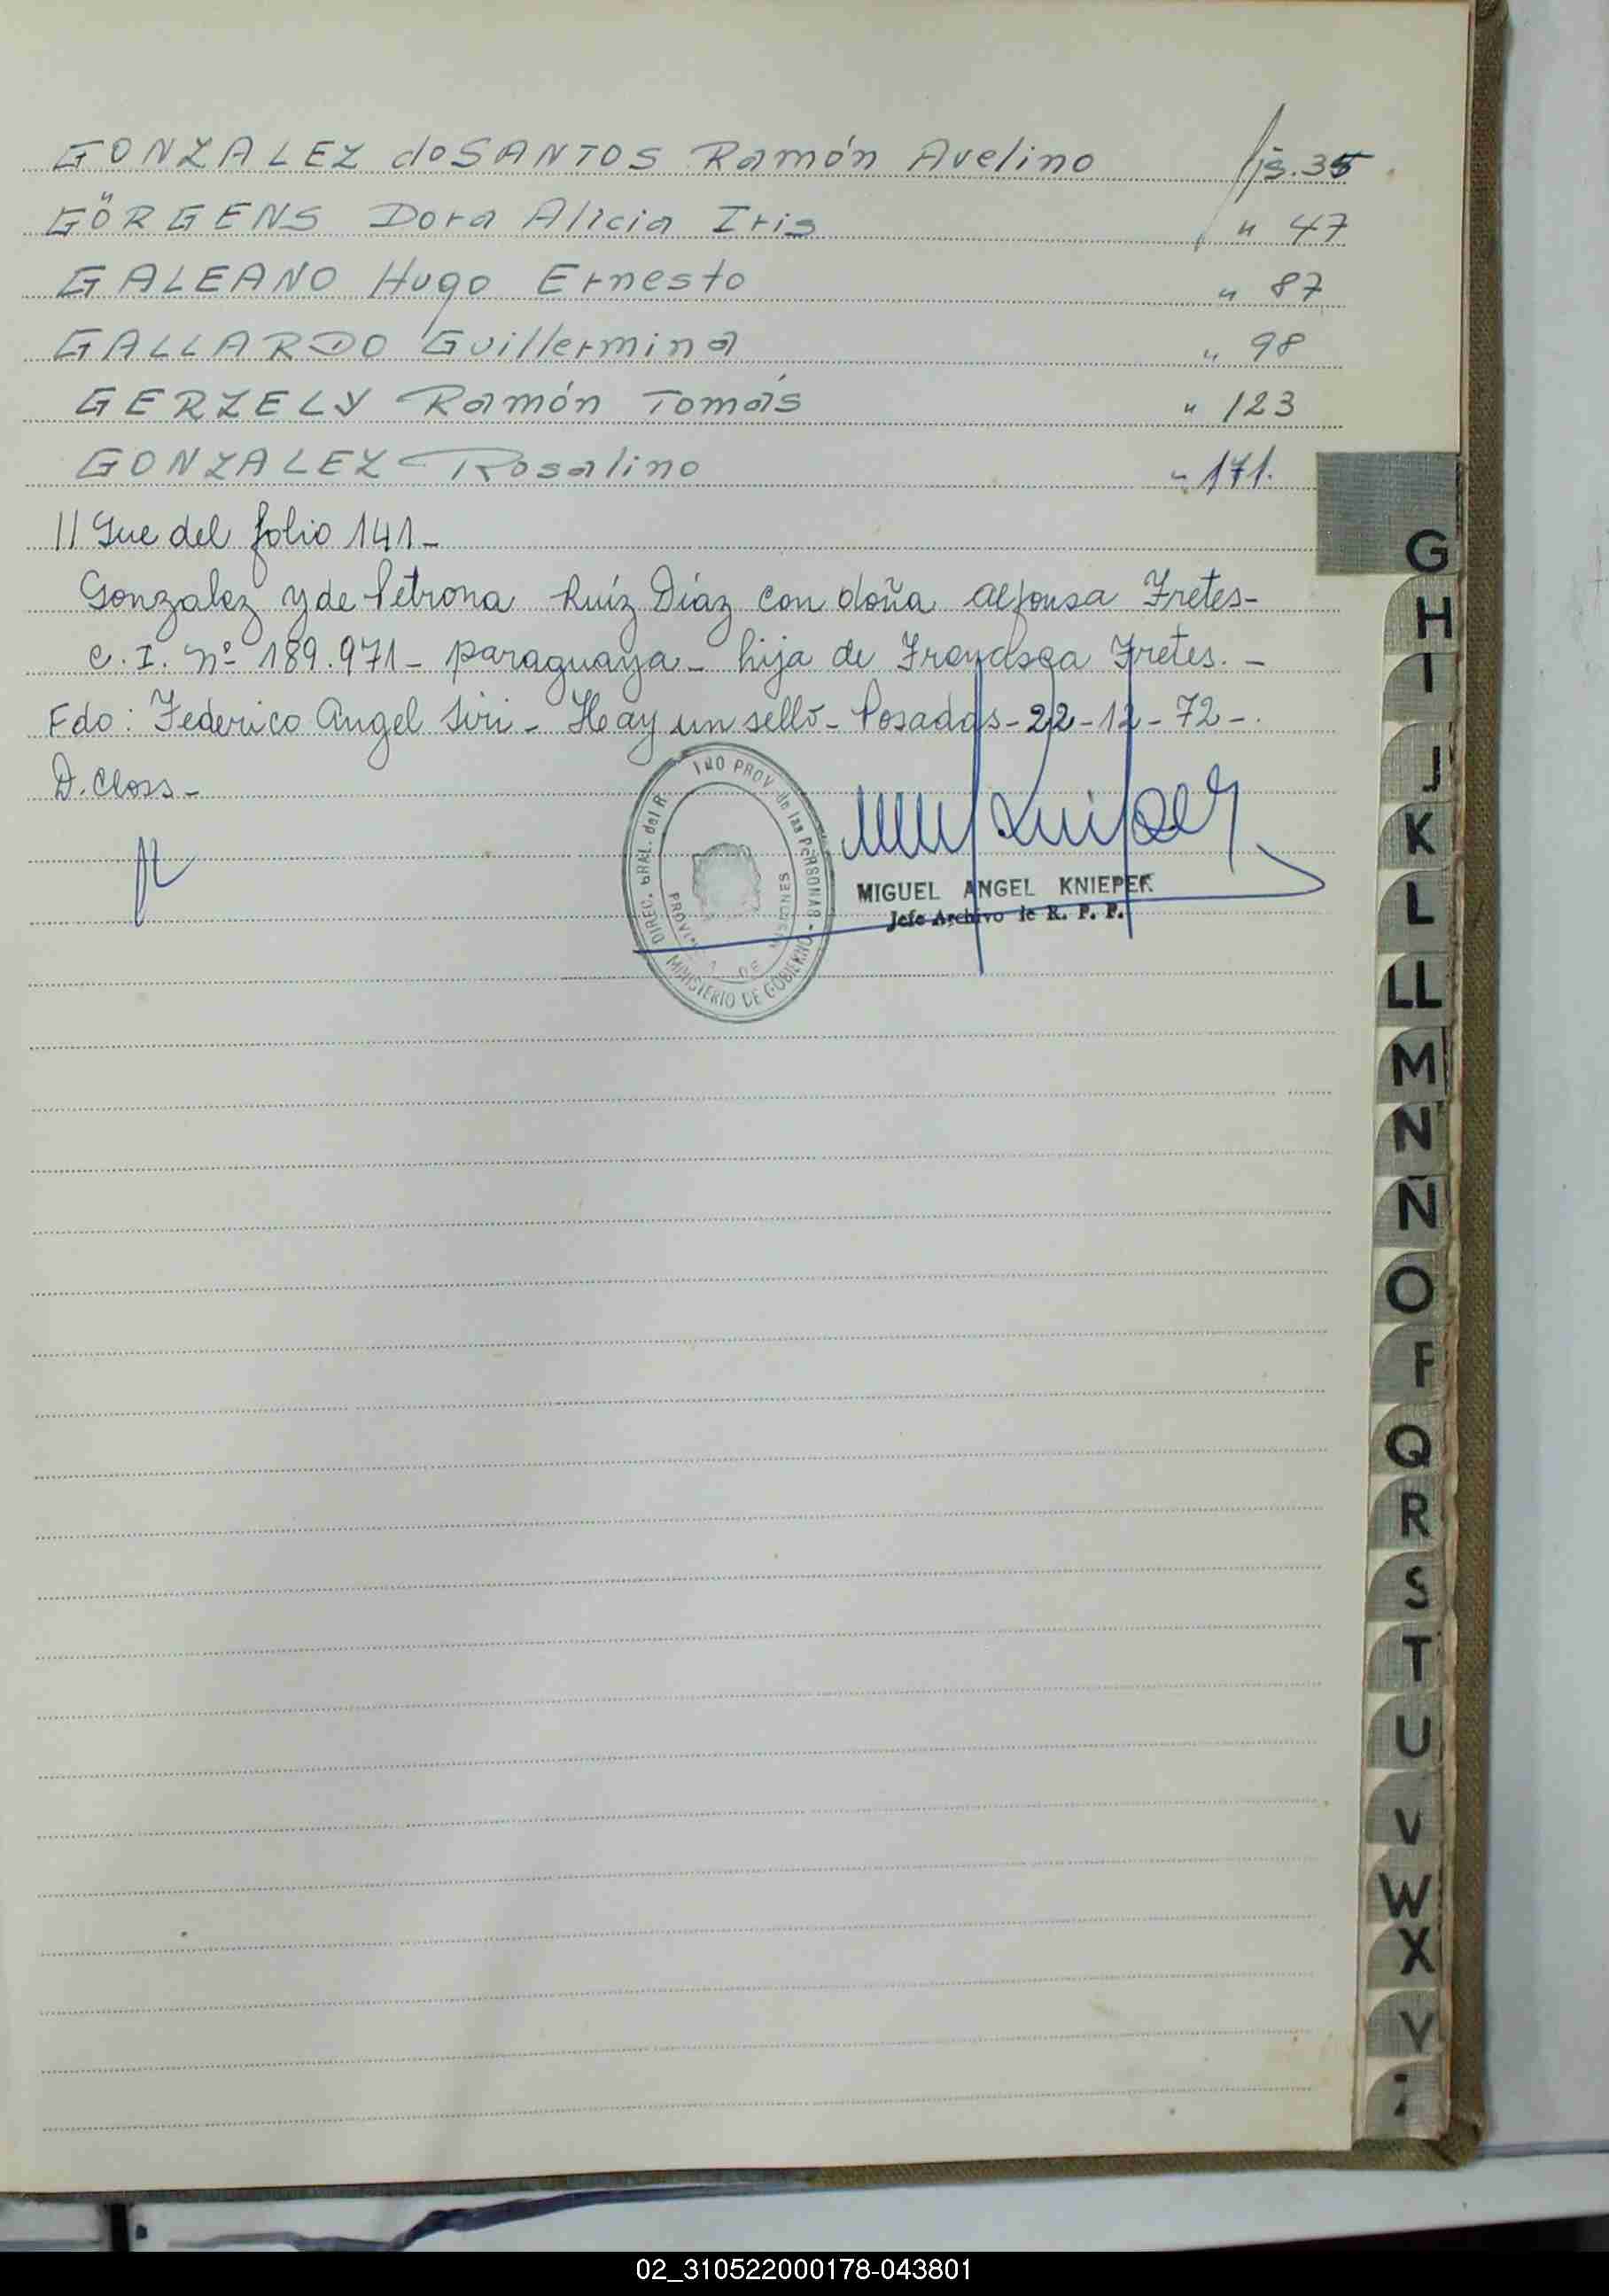 GONZALEZ doSANTOS Ramón Avelino fjs. 35
GÖRGENS Dora Alicia Iris " 47
GALEANO Hugo Ernesto " 87
GALLARDO Guillermina " 98
GERZELY Ramón Tomás " 123
GONZALEZ Rosalino " 171.
// Gue del folio 141-
Gonzalez y de Petrona Ruíz Díaz con doña Alfonsa Fretes-
C. I. Nº 189.971- paraguaya- hija de Francisca Fretes. -
Fdo: Federico Angel Siri - Hay un sello - Posadas - 22-12-72-.
D. Closs-
DIREC. GRAL. del R. PROV. de las PERSONAS - MINISTERIO DE GOBIERNO
PROVINCIA DE MISIONES
MIGUEL ANGEL KNIEPER
Jefe Archivo de R. P. P.
G
H
I
J
K
L
LL
M
N
Ñ
O
P
Q
R
S
T
U
V
W
X
Y
Z
02_310522000178-043801